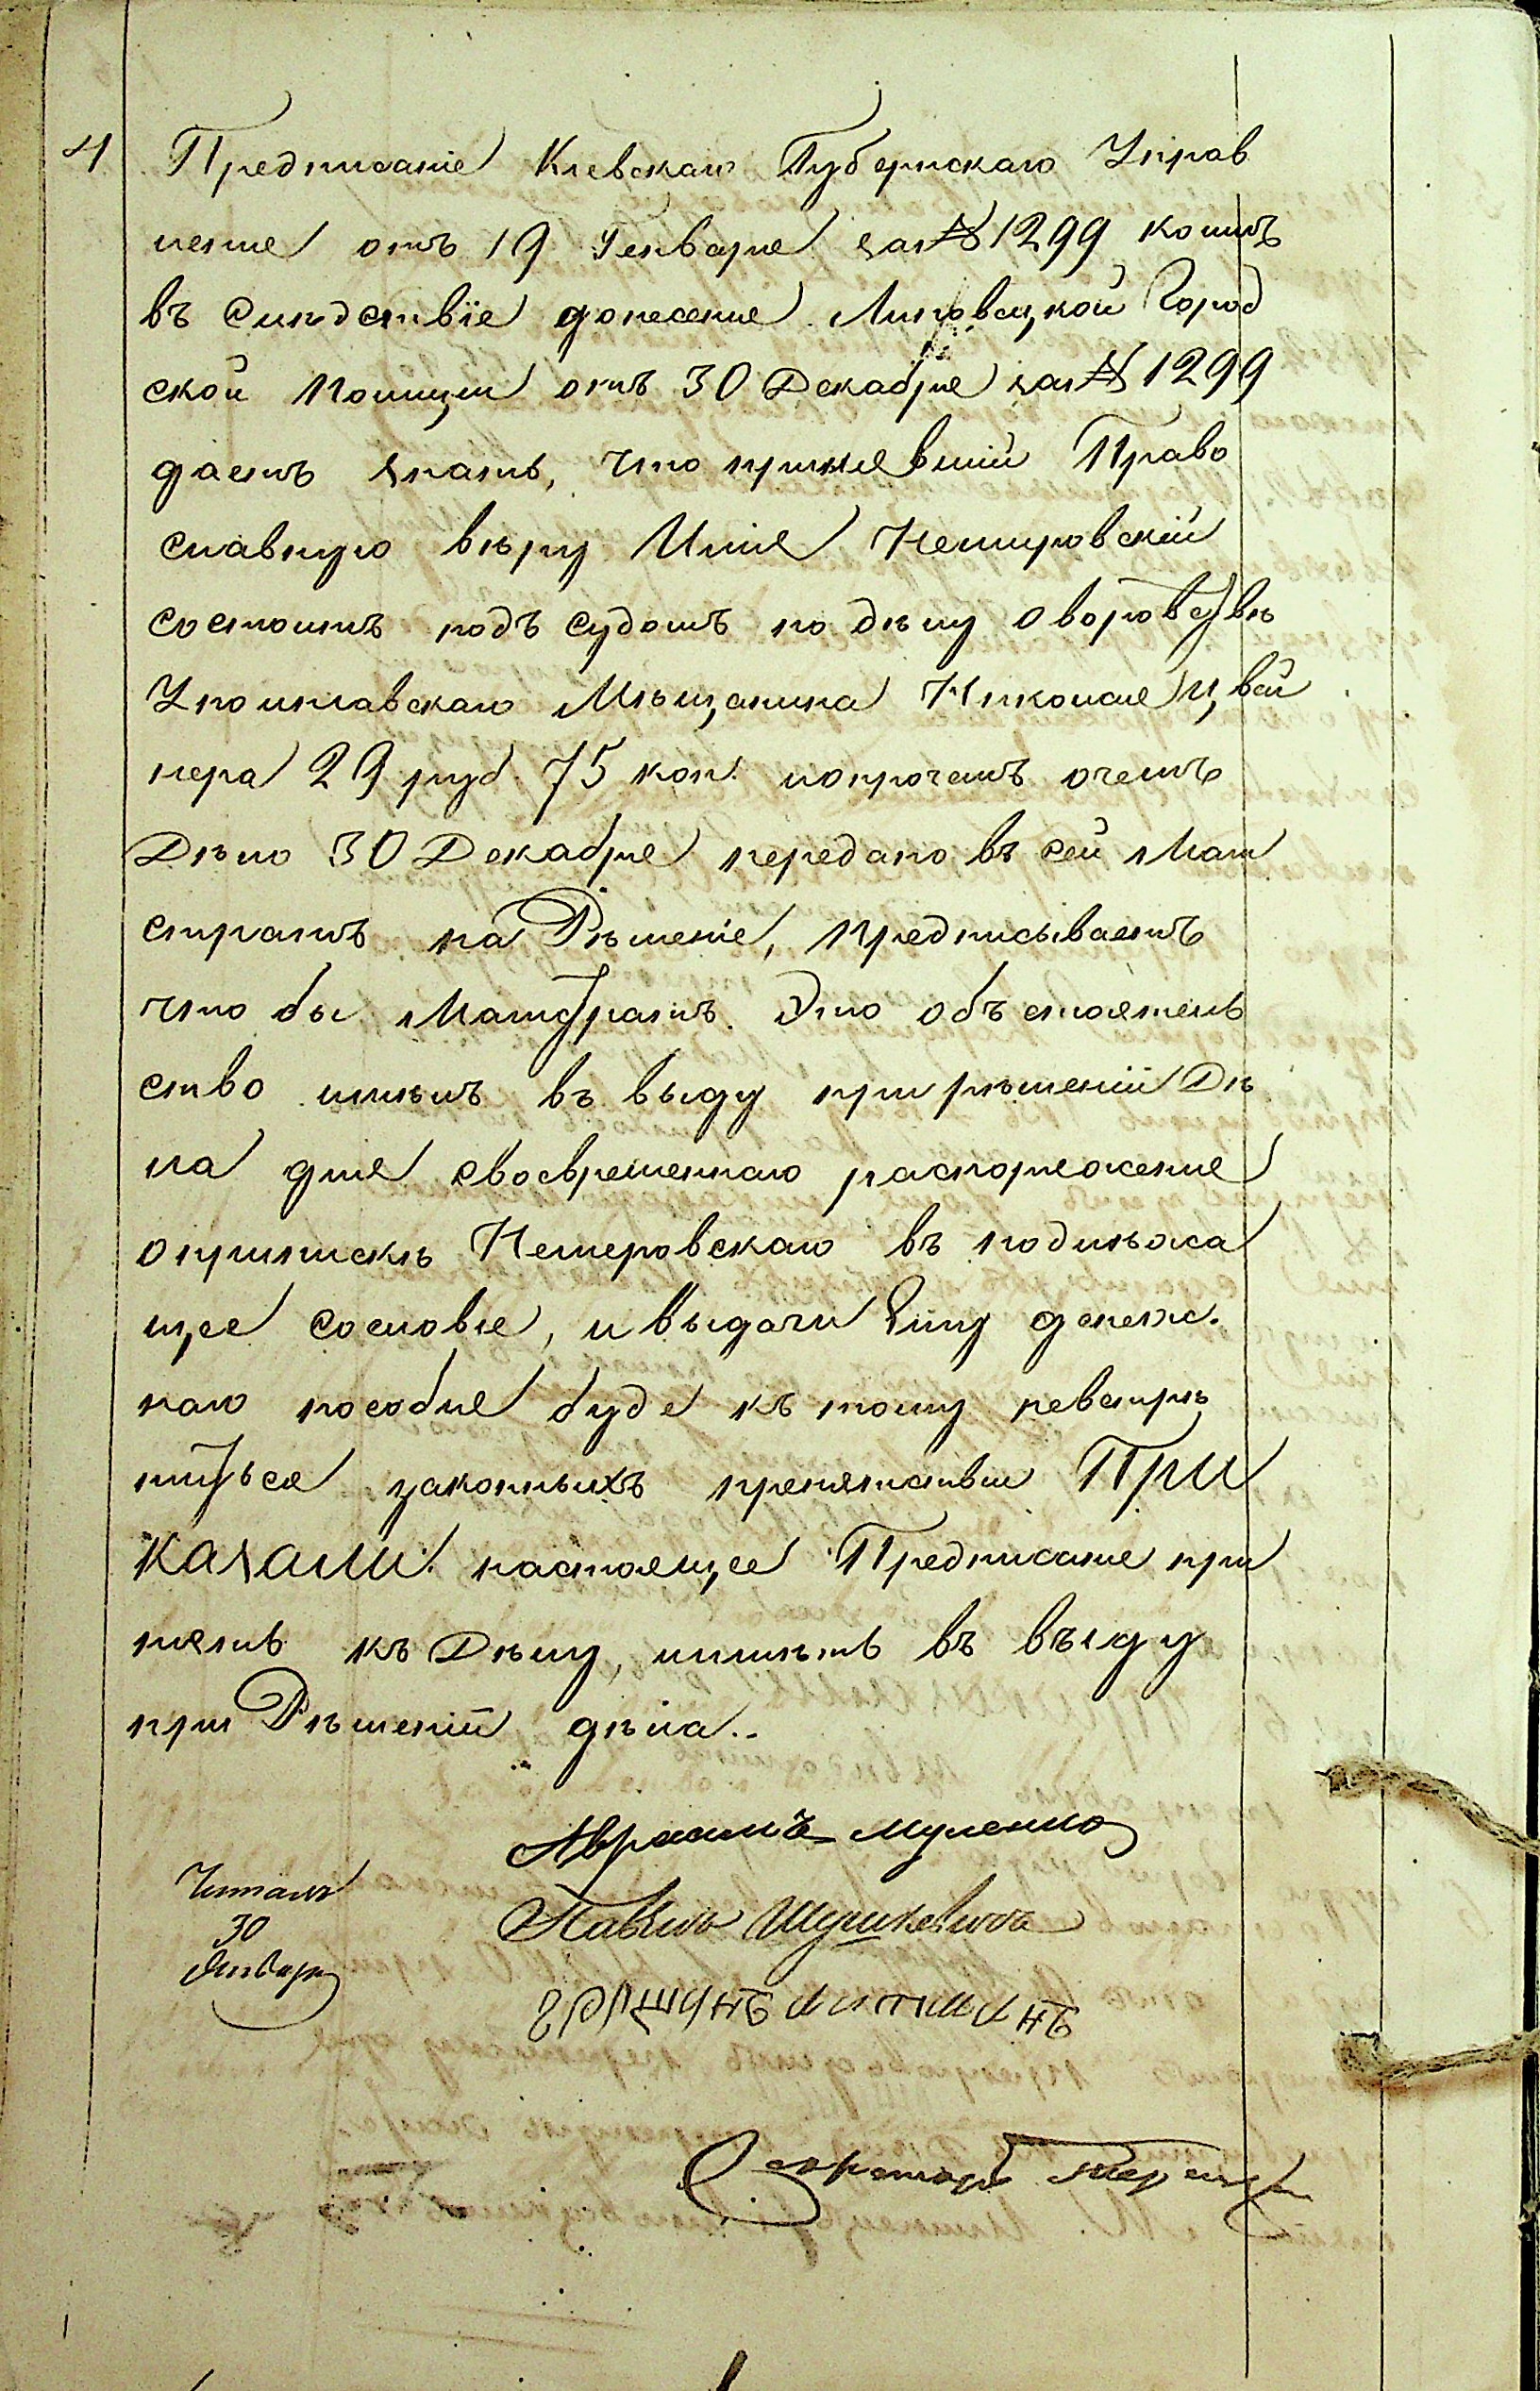 4 Предписаніе Кіевскаго Губернскаго Управ
ленія отъ 19 Генваря за № 1299 коимъ
въ слѣдствіе донесенія Липовецкой Город
ской Полиціи отъ 30 Декабря за № 1299
даетъ знать, что принявшій Право
славную вѣру Илія Немировскій
состоитъ подъ судомъ по дѣлу о воровствѣ
у Мѣщанина Николая
29 руб. 75 коп. и о прочемъ о чемъ
Дѣло 30 Декабря передано въ сей Маги
стратъ на Рѣшеніе, предписываетъ
что бы Магистратъ Это объстоятель
ство имѣлъ въ выду при рѣшеніи Дѣ
ла для своевременнаго распоряженія
о припискѣ Немеровскаго въ подлѣжа
щее сословіе, и выдачи Ему денеж.
наго пособія буде къ тому невстрѣ
титься законныхъ препятствій При
казали: настоящее Предписаніе при
нять къ Дѣлу, имѣть въ выду
при Рѣшеніи дѣла..
Авраамъ
Павелъ
Читалъ
30
Января
Секретарь